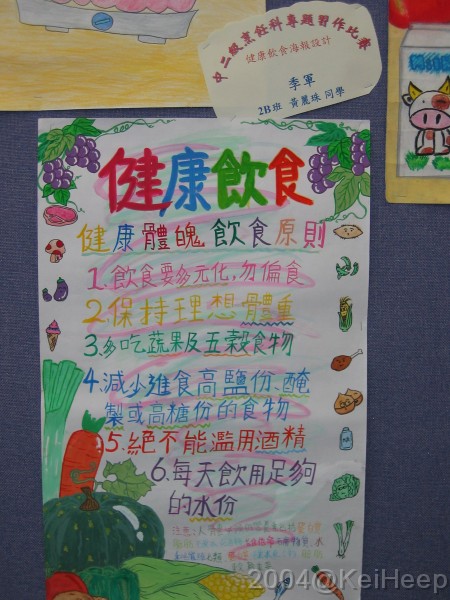 中二級烹飪科專題習作比賽
健康飲食海報設計
季軍
2B班 黃麗珠 同學
健康飲食
健康體魄飲食原則
1.飲食要多元化,勿偏食
2.保持理想體重
3.多吃蔬果及五穀食物
4.減少進食高鹽份、醃
製或高糖份的食物
5.絕不能濫用酒精
6.每天飲用足夠
的水份
2004@KeiHeep